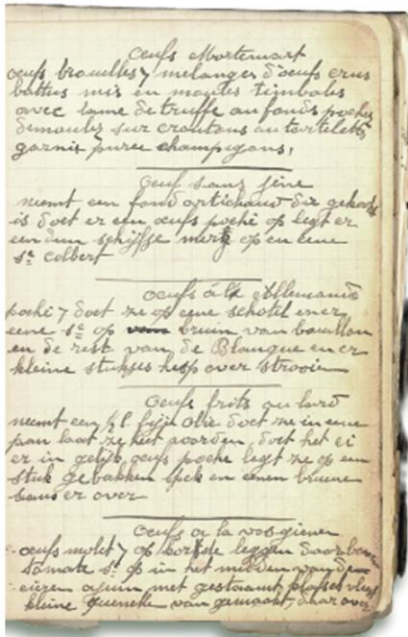 Oeufs Mortemart
oeufs brouilles y melanger d'oeufs crus
battus mis en moules timbales
avec lame de truffe au fonds poches
demoules sur croutons au tartelett
garnir puree champigons,
Oeuf sans gêne
neemt een fond artichaud die gekookt
is doet er een oeufs poché op legt er
een dun schijfje merg op en eene
se colbert
oeufs á la Allemande
poché y doet ze op eene schotel en er
eene se op bruin van bouillon
en de rest van de Blanque en er
kleine stukjes hesp over strooien
Oeufs frits au lard
neemt een ½ l fijn olie doet ze in eene
pan laat ze heet worden, doet het ei
er in gelijk oeufs poche legt ze op een
stuk gebakken spek en eenen bruine
saus er over
Oeufs a la vosgienne
oeufs molet y op leggen daar
tomate se op in het midden van den
eieren ajuin met gestaamt
kleine queneke van gemaakt, daar over